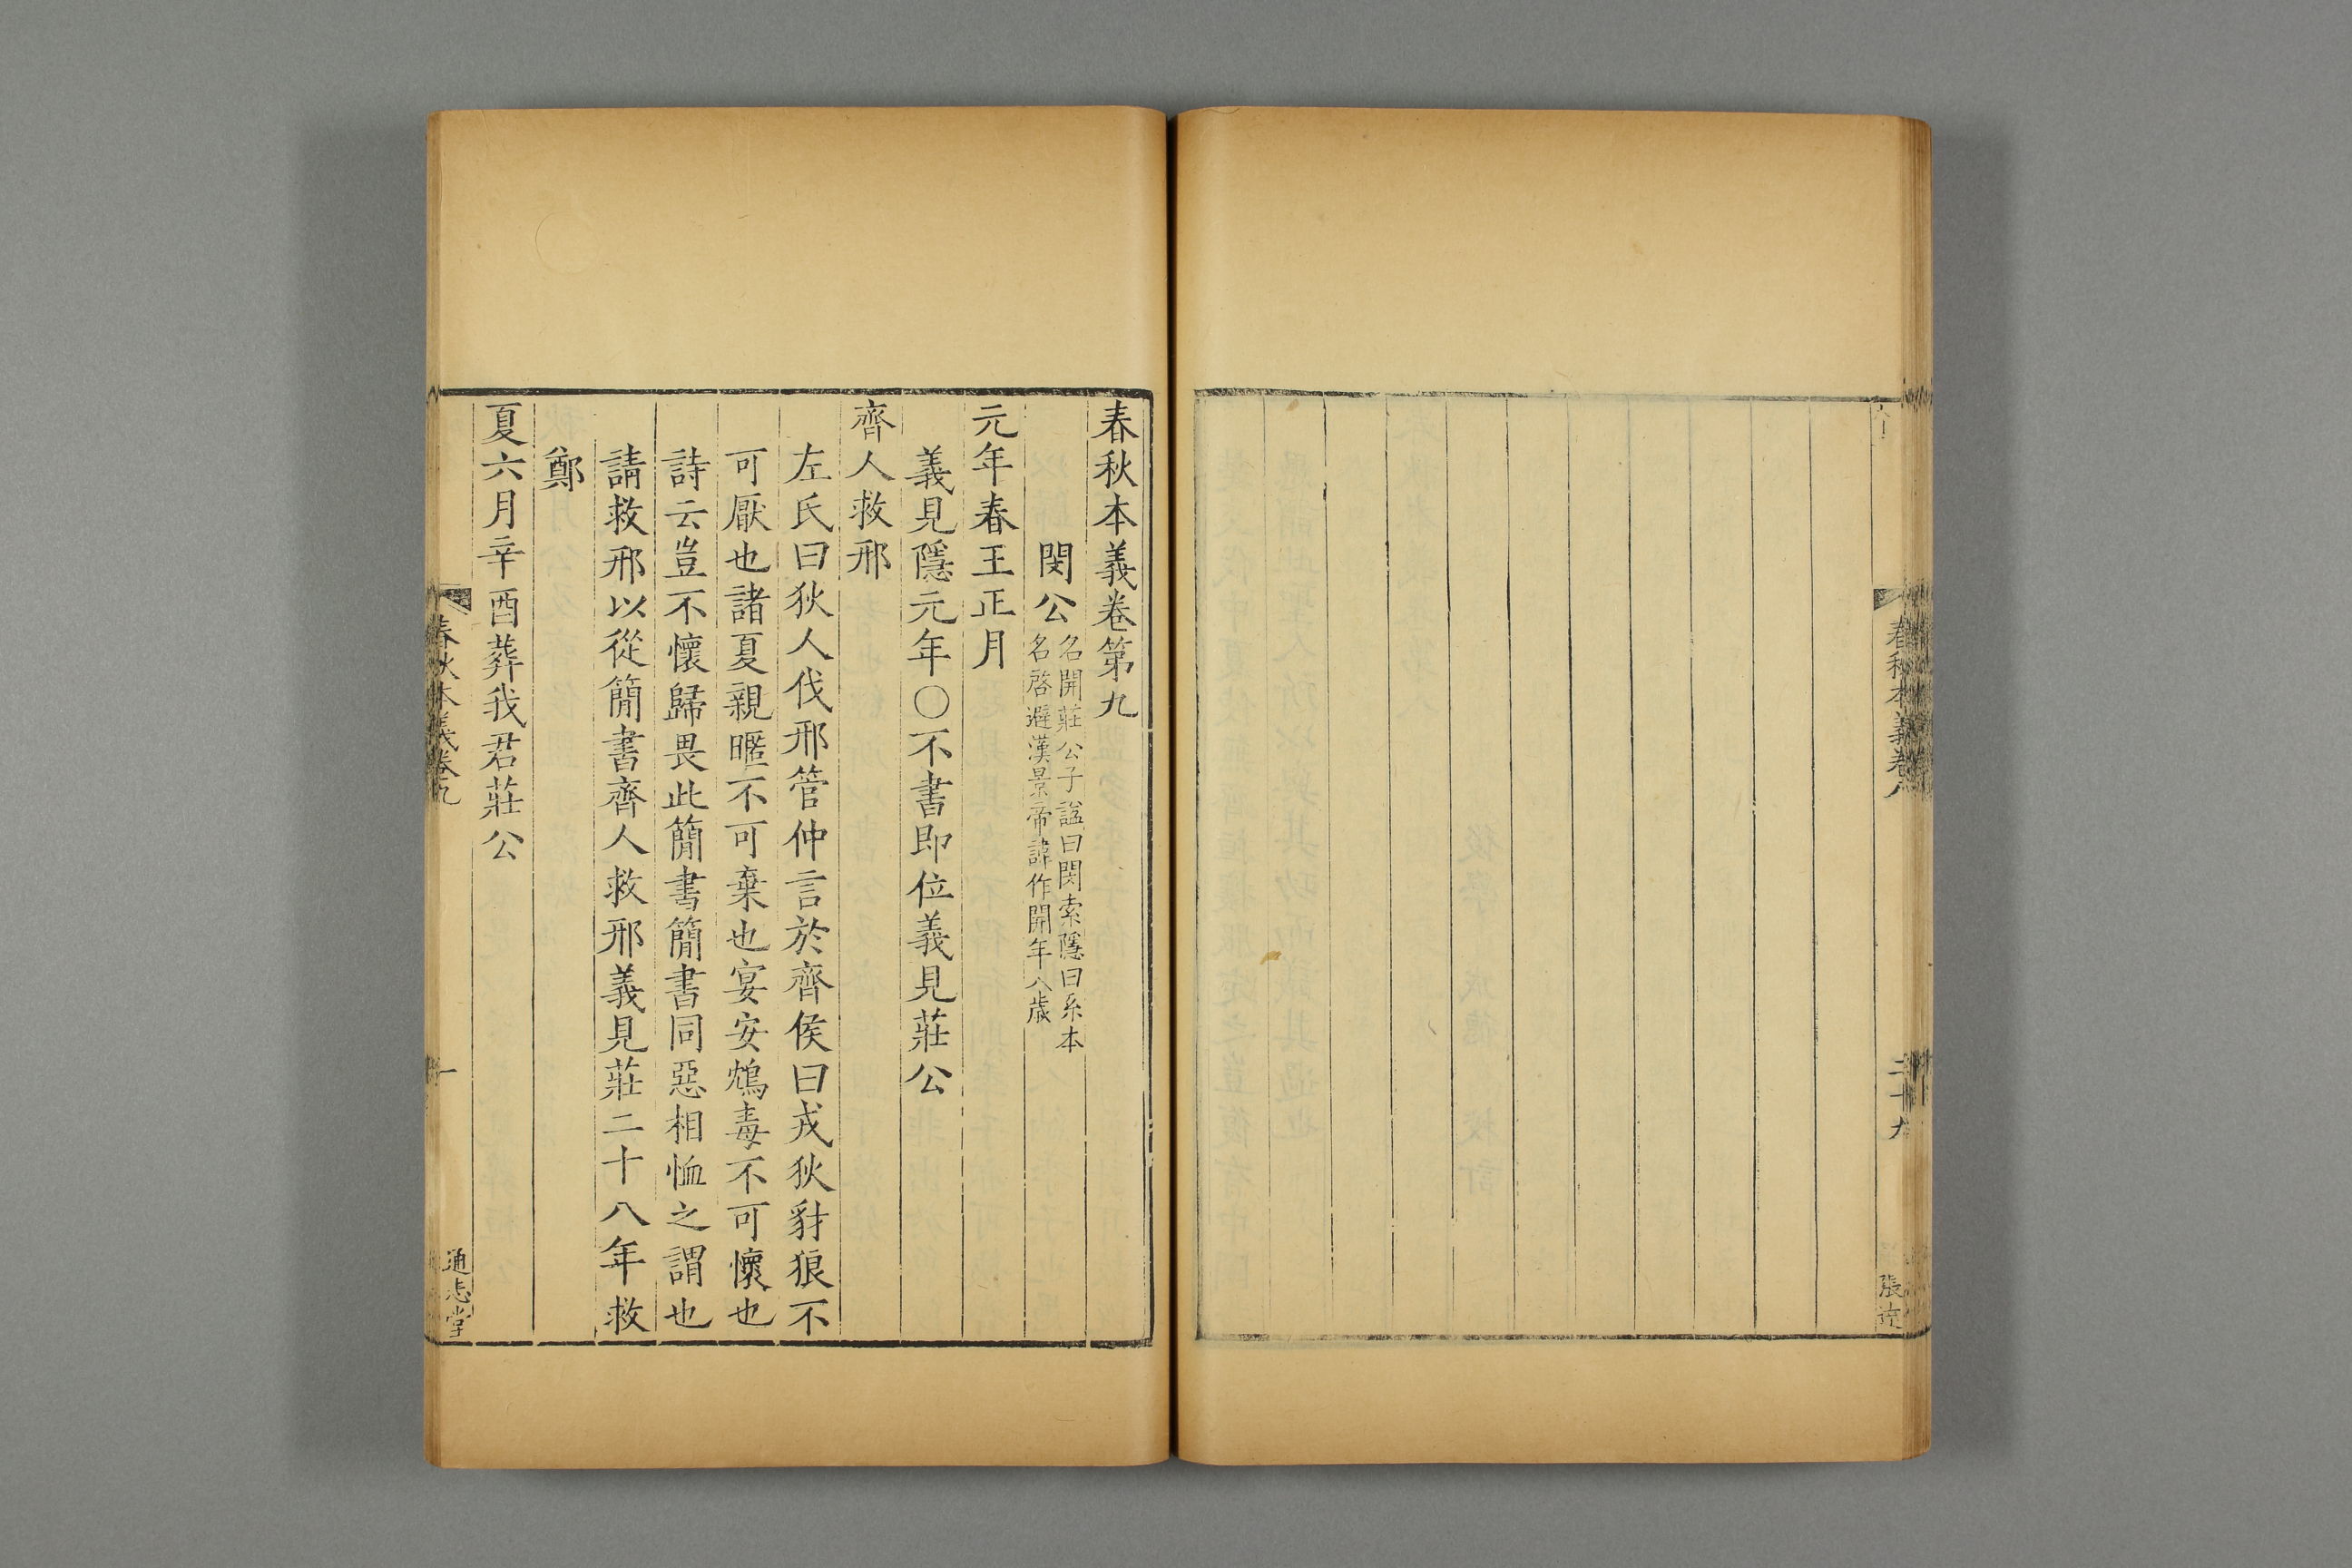 春秋本義卷八
二十九
春秋本義卷第九
閔公
名開莊公子諡曰閔索隱曰系本
名啓避漢景帝諱作開年八歲
元年春王正月
義見隱元年〇不書即位義見莊公
齊人救邢
左氏曰狄人伐邢管仲言於齊侯曰戎狄豺狼不
可厭也諸夏親暱不可棄也宴安鴆毒不可懷也
詩云豈不懷歸畏此簡書簡書同惡相恤之謂也
請救邢以從簡書齊人救邢義見莊二十八年救
鄭
夏六月辛酉葬我君莊公
春秋本義卷九
一
通志堂